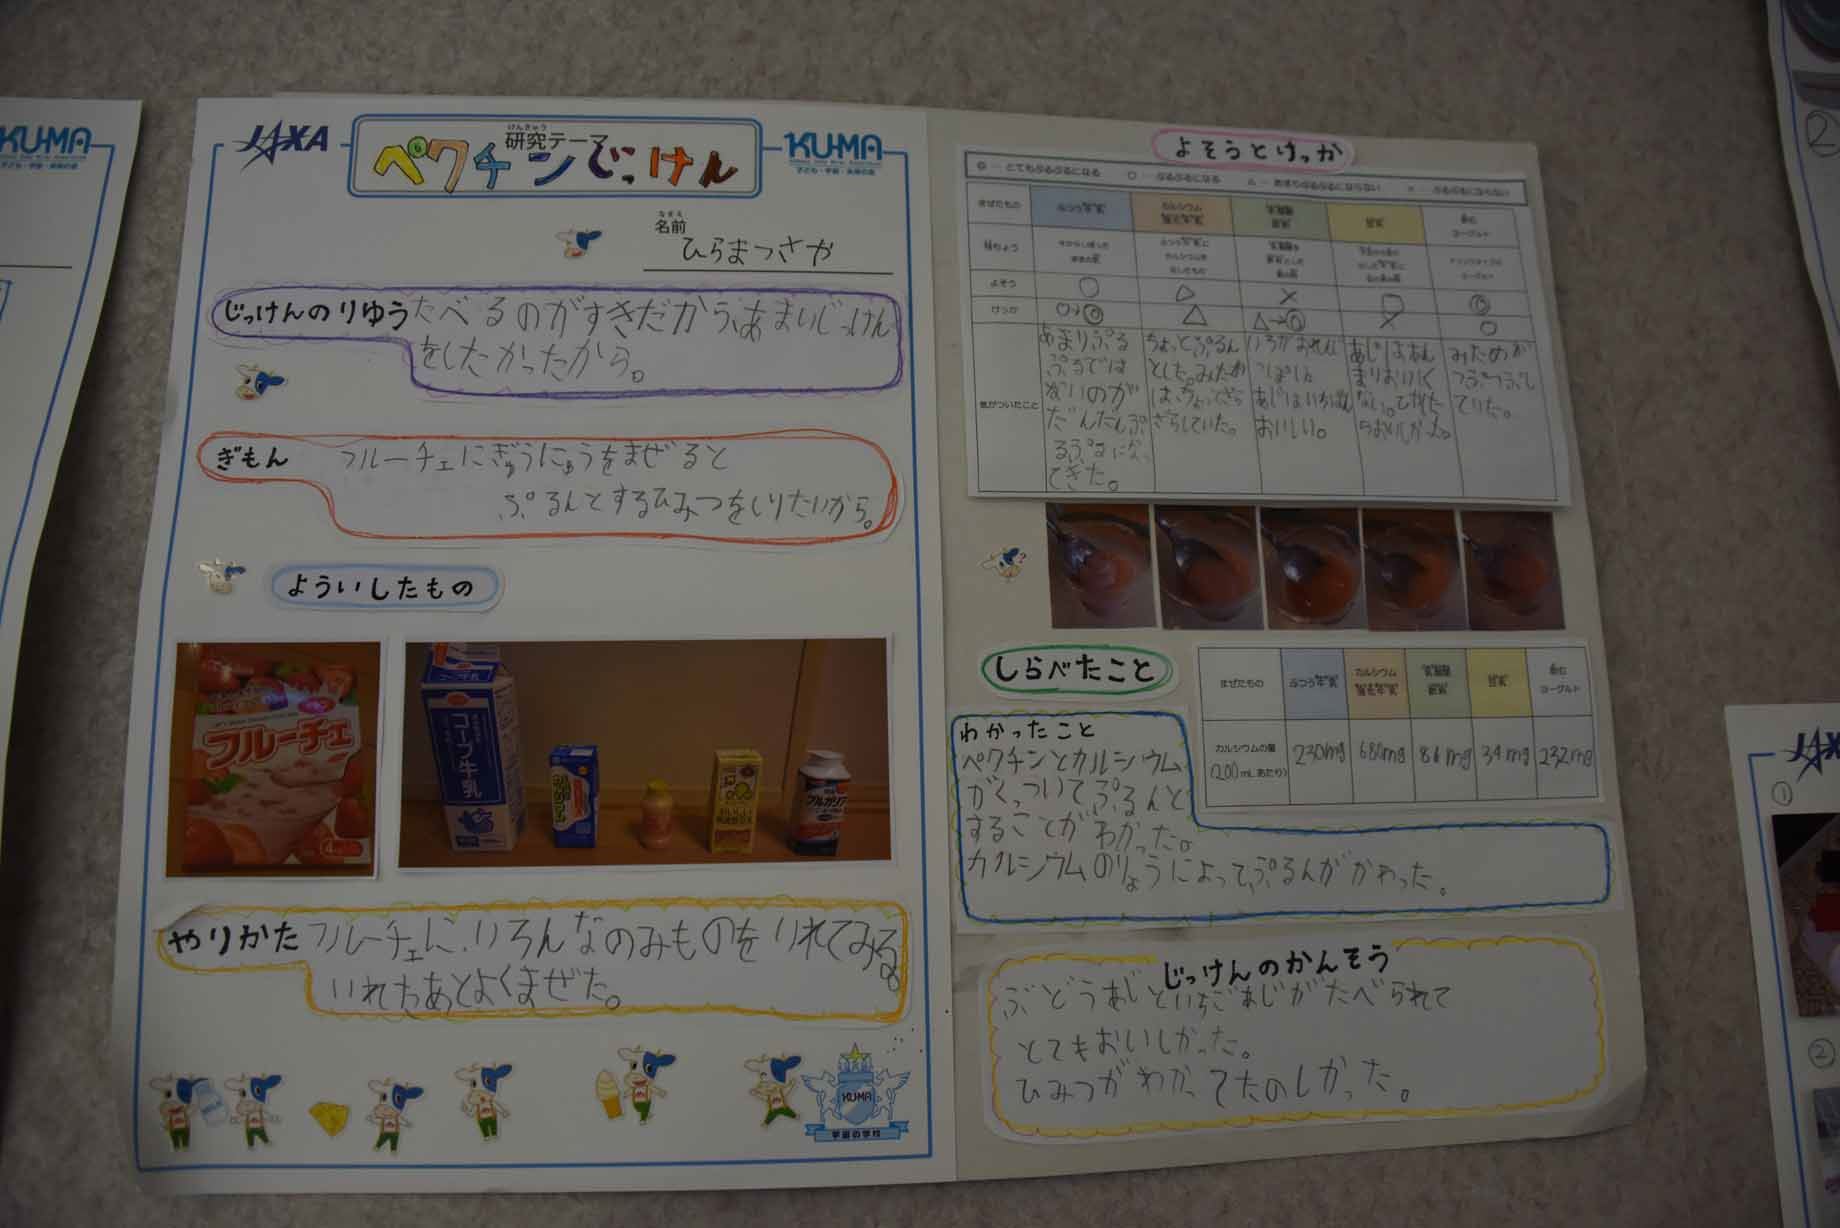 KU-MA
子ども・宇宙・未来の会
JAXA
けんきゅう
研究テーマ
ペクチンじっけん
KU-MA
子ども・宇宙・未来の会
なまえ
名前
ひらまつさや
じっけんのりゆう たべるのがすきだから、あまいじっけん
をしたかったから。
ぎもん フルーチェにぎゅうにゅうをまぜると
ぷるんとするひみつをしりたいから。
よういしたもの
フルーチェ
コープ牛乳
ブルガリア
やりかた フルーチェに、いろんなのみものをいれてみる。
いれたあとよくまぜた。
KUMA
宇宙の学校
よそうとけっか
◎…とてもぷるぷるになる ○…ぷるぷるになる △…あまりぷるぷるにならない ×…ぷるぷるにならない
まぜたもの ふつう牛乳 カルシウム 豆乳 飲む
ヨーグルト
よそう ○ △ × ◎
けっか ○→◎ △ △→◎ × ○
気がついたこと
あまりぷる
ぷるでは
ないのが
だんだんぷ
るぷるになっ
てきた。
ちょっとぷるん
とした。みため
は、ちょっとざら
ざらしていた。
いろがおれん
じっぽい。
あじはいちばん
おいしい。
あじはあん
まりおいしく
ない。
みためが
つぶつぶし
ていた。
しらべたこと
まぜたもの ふつう牛乳 カルシウム 豆乳 飲む
ヨーグルト
カルシウムの量
(200mLあたり) 230mg 680mg 86mg 34mg 232mg
わかったこと
ペクチンとカルシウム
がくっついてぷるんと
することがわかった。
カルシウムのりょうによって、ぷるんがかわった。
じっけんのかんそう
ぶどうあじといちごあじがたべられて
とてもおいしかった。
ひみつがわかってたのしかった。
②
JAXA
①
②